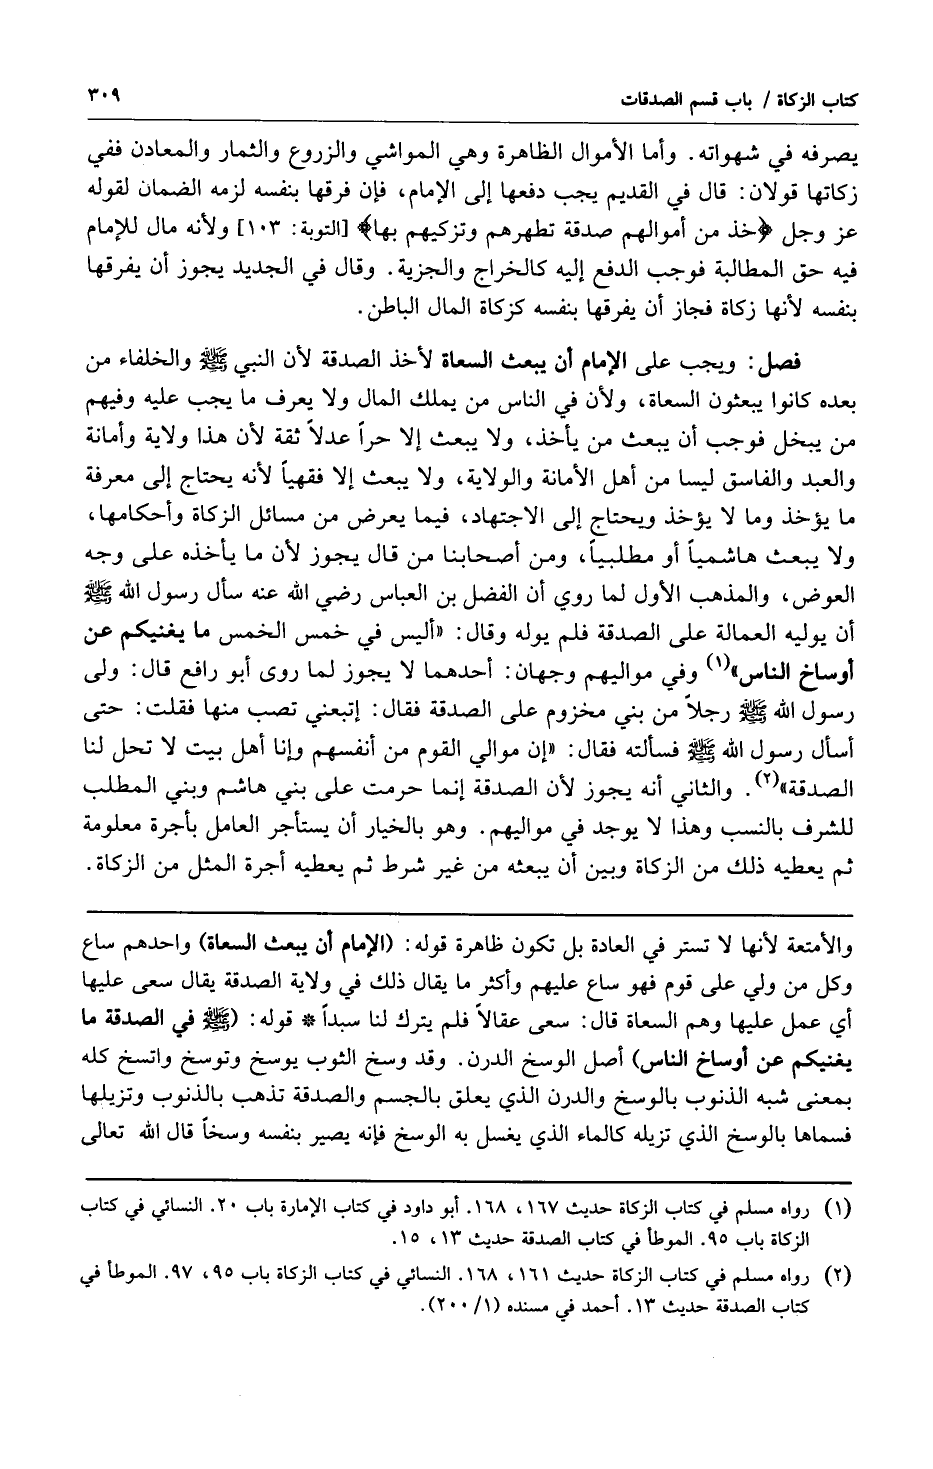 كتاب الزكاة / باب قسم الصدقات ٣٠٩
يصرفه في شهواته. وأما الأموال الظاهرة وهي المواشي والزروع والثمار والمعادن ففي
زكاتها قولان: قال في القديم يجب دفعها إلى الإمام، فإن فرقها بنفسه لزمه الضمان لقوله
عز وجل ﴿خذ من أموالهم صدقة تطهرهم وتزكيهم بها﴾ [التوبة: ١٠٣] ولأنه مال للإمام
فيه حق المطالبة فوجب الدفع إليه كالخراج والجزية. وقال في الجديد يجوز أن يفرقها
بنفسه لأنها زكاة فجاز أن يفرقها بنفسه كزكاة المال الباطن.
فصل: ويجب على الإمام أن يبعث السعاة لأخذ الصدقة لأن النبي ﷺ والخلفاء من
بعده كانوا يبعثون السعاة، ولأن في الناس من يملك المال ولا يعرف ما يجب عليه وفيهم
من يبخل فوجب أن يبعث من يأخذ، ولا يبعث إلا حراً عدلاً ثقة لأن هذا ولاية وأمانة
والعبد والفاسق ليسا من أهل الأمانة والولاية، ولا يبعث إلا فقهياً لأنه يحتاج إلى معرفة
ما يؤخذ وما لا يؤخذ ويحتاج إلى الاجتهاد، فيما يعرض من مسائل الزكاة وأحكامها،
ولا يبعث هاشمياً أو مطلبياً، ومن أصحابنا من قال يجوز لأن ما يأخذه على وجه
العوض، والمذهب الأول لما روي أن الفضل بن العباس رضي الله عنه سأل رسول الله ﷺ
أن يوليه العمالة على الصدقة فلم يوله وقال: «أليس في خمس الخمس ما يغنيكم عن
أوساخ الناس»(١) وفي مواليهم وجهان: أحدهما لا يجوز لما روى أبو رافع قال: ولى
رسول الله ﷺ رجلاً من بني مخزوم على الصدقة فقال: إتبعني تصب منها فقلت: حتى
أسأل رسول الله ﷺ فسألته فقال: «إن موالي القوم من أنفسهم وإنا أهل بيت لا تحل لنا
الصدقة»(٢). والثاني أنه يجوز لأن الصدقة إنما حرمت على بني هاشم وبني المطلب
للشرف بالنسب وهذا لا يوجد في مواليهم. وهو بالخيار أن يستأجر العامل بأجرة معلومة
ثم يعطيه ذلك من الزكاة وبين أن يبعثه من غير شرط ثم يعطيه أجرة المثل من الزكاة.
والأمتعة لأنها لا تستر في العادة بل تكون ظاهرة قوله: (الإمام أن يبعث السعاة) واحدهم ساع
وكل من ولي على قوم فهو ساع عليهم وأكثر ما يقال ذلك في ولاية الصدقة يقال سعى عليها
أي عمل عليها وهم السعاة قال: سعى عقالاً فلم يترك لنا سبداً * قوله: (ﷺ في الصدقة ما
يغنيكم عن أوساخ الناس) أصل الوسخ الدرن. وقد وسخ الثوب يوسخ وتوسخ واتسخ كله
بمعنى شبه الذنوب بالوسخ والدرن الذي يعلق بالجسم والصدقة تذهب بالذنوب وتزيلها
فسماها بالوسخ الذي تزيله كالماء الذي يغسل به الوسخ فإنه يصير بنفسه وسخاً قال الله تعالى
(١) رواه مسلم في كتاب الزكاة حديث ١٦٧، ١٦٨. أبو داود في كتاب الإمارة باب ٢٠. النسائي في كتاب
الزكاة باب ٩٥. الموطأ في كتاب الصدقة حديث ١٣، ١٥.
(٢) رواه مسلم في كتاب الزكاة حديث ١٦١، ١٦٨. النسائي في كتاب الزكاة باب ٩٥، ٩٧. الموطأ في
كتاب الصدقة حديث ١٣. أحمد في مسنده (١/ ٢٠٠).